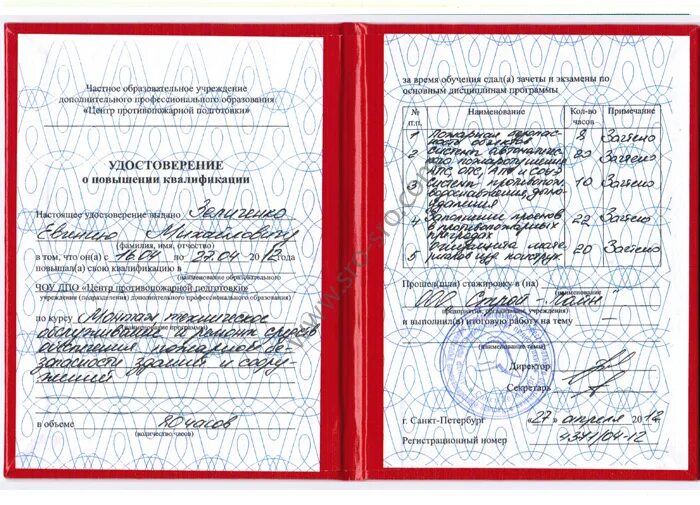 Частное образовательное учреждение
дополнительного профессионального образования
«Центр противопожарной подготовки»
УДОСТОВЕРЕНИЕ
о повышении квалификации
Настоящее удостоверение выдано Зеличенко
Евгению Михайловичу
(фамилия, имя, отчество)
в том, что он(а) с 16.04 по 27.04 2012 года
повышал(а) свою квалификацию в
(наименование образовательного
ЧОУ ДПО «Центр противопожарной подготовки»
учреждения (подразделения) дополнительного профессионального образования)
по курсу Монтаж, техническое
обслуживание и ремонт средств
обеспечения пожарной бе-
зопасности зданий и соору-
жений
в объеме 80 часов
(количество часов)
за время обучения сдал(а) зачеты и экзамены по
основным дисциплинам программы
№ п.п. Наименование Кол-во часов Примечание
1 Пожарная безопас-
ность объектов 8 Зачтено
2 Системы автоматичес-
кого пожаротушения
АПС, ОПС, АПУ и СОУЭ Зачтено
3 Системы противопож.
водоснабжения, дымо-
удаления 10 Зачтено
4 Заполнение проемов
в противопожарных
преградах 22 Зачтено
5 Огнезащита мате-
риалов 20 Зачтено
Прошел(шла) стажировку в (на)
(наименование
ООО Строй-
предприятия, организации, учреждения)
и выполнил(а) итоговую работу на тему —
(наименование темы)
Директор
Секретарь
г. Санкт-Петербург «27» апреля 2012
Регистрационный номер 4371/04-12
www.sro-sro.com